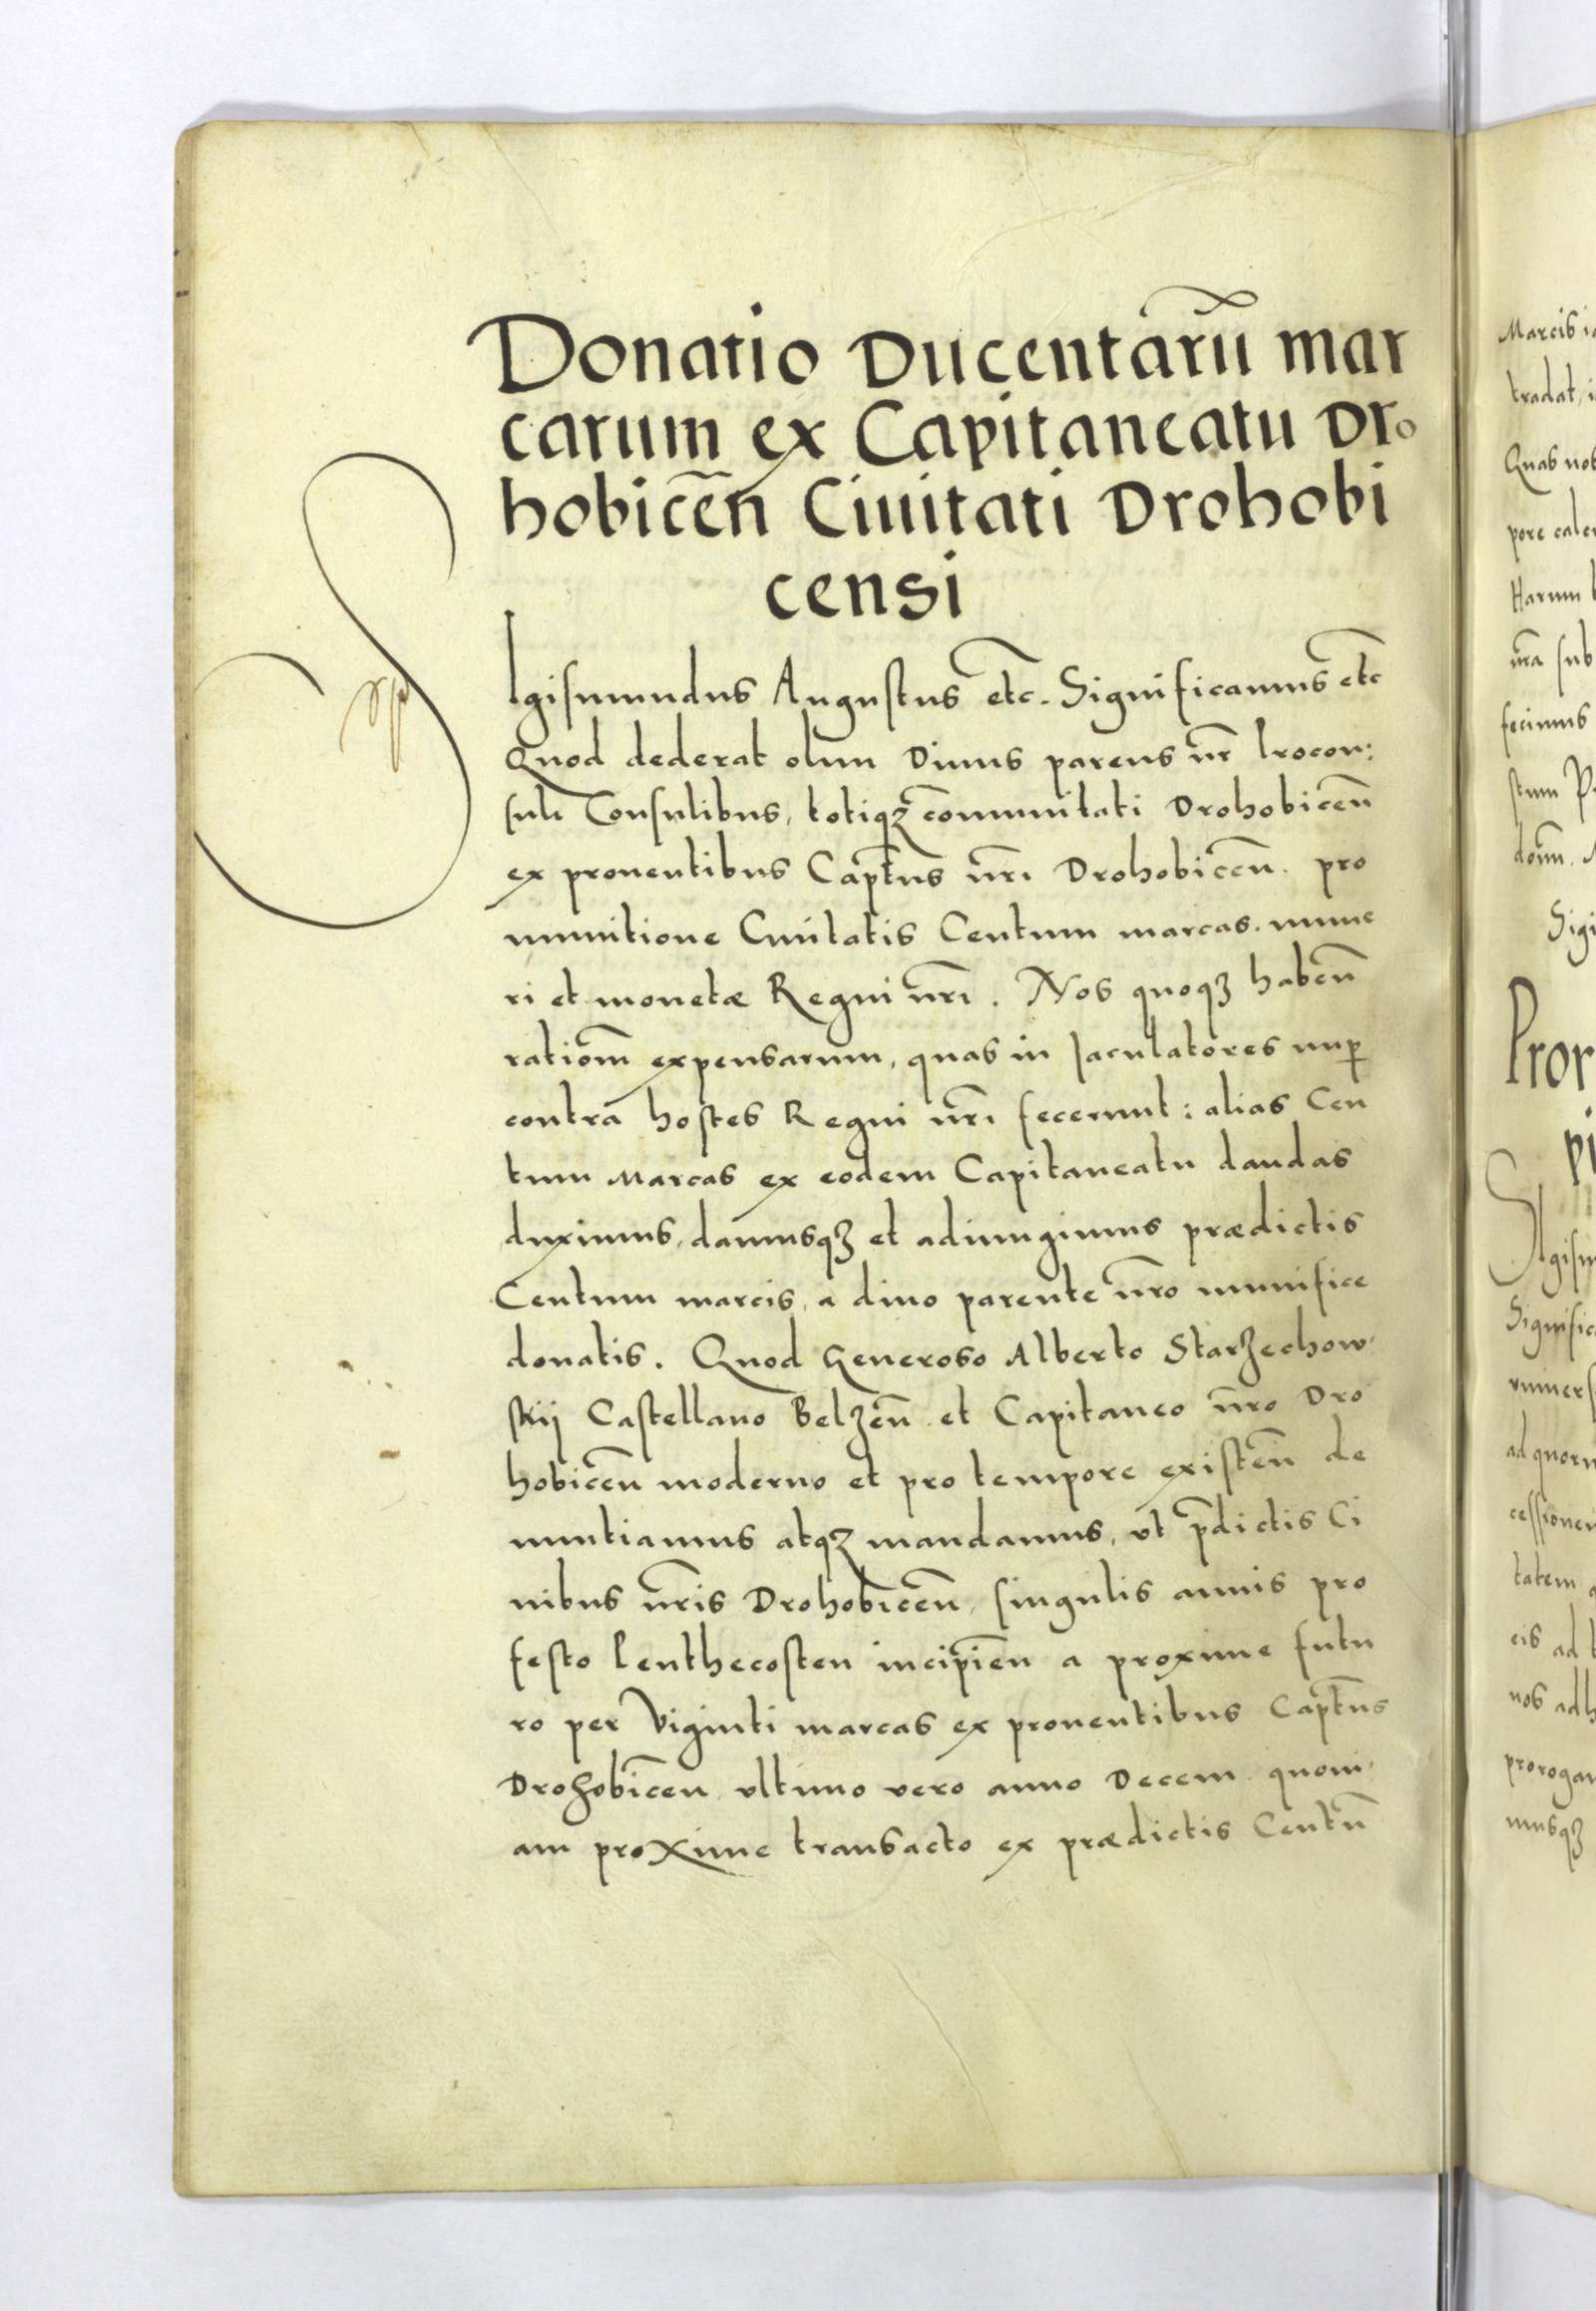 Donatio Ducentarũ mar
carum ex Capitaneatu Dro
hobiceñ Ciuitati Drohobi
censi
SIgismundus Augustus etc. Significamus etc
Quod dederat olim Diuus parens nr̃ Procon:
suli Consulibus, totiqꝫ cõmunitati Drohobiceñ
ex prouentibus Captũs nr̃i Drohobiceñ. pro
munitione Ciuitatis Centum marcas. nume
ri et monetæ Regni nr̃i. Nos quoqꝫ habeñ
rationẽ expensarum, quas in Iaculatores nuꝑ
contra hostes Regni nr̃i fecerunt: alias Cen
tum Marcas ex eodem Capitaneatu dandas
duximus, damusqꝫ et adiungimus prædictis
Centum marcis, a diuo parente nr̃o munifice
donatis. Quod Generoso Alberto Starzechow
skij Castellano Belzeñ. et Capitaneo nr̃o Dro
hobiceñ moderno et pro tempore existeñ de
nuntiamus atqꝫ mandamus, vt p̃dictis Ci
uibus nr̃is Drohobiceñ, singulis annis pro
festo Penthecosten incipieñ a proxime futu
ro per Viginti marcas ex prouentibus Captũs
Drohobiceñ vltimo vero anno Decem. quoni
am proxime transacto ex prædictis Centũ
Marcis
tradat,
Quas
pore
Harum
nr̃a sub
fecimus
stum
Sigi
Pror
pi
SIgism
Signific
vniuers
ad quoru
cessionem
tatem
eis ad
nos adh
prorogan
musqꝫ